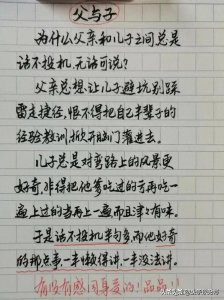 父与子
为什么父亲和儿子之间总是
话不投机，无话可说？
父亲总想让儿子避坑别踩
雷走捷径，恨不得把自己半辈子的
经验教训，掀开脑门灌进去。
儿子总是对弯路上的风景更
好奇非得把他爹吃过的苦再吃一
遍上过的当再上一遍而且津津有味。
于是话不投机半句多，而他好奇
的那点事一半懒得讲，一半没法讲。
有没有感同身受的！品品！！